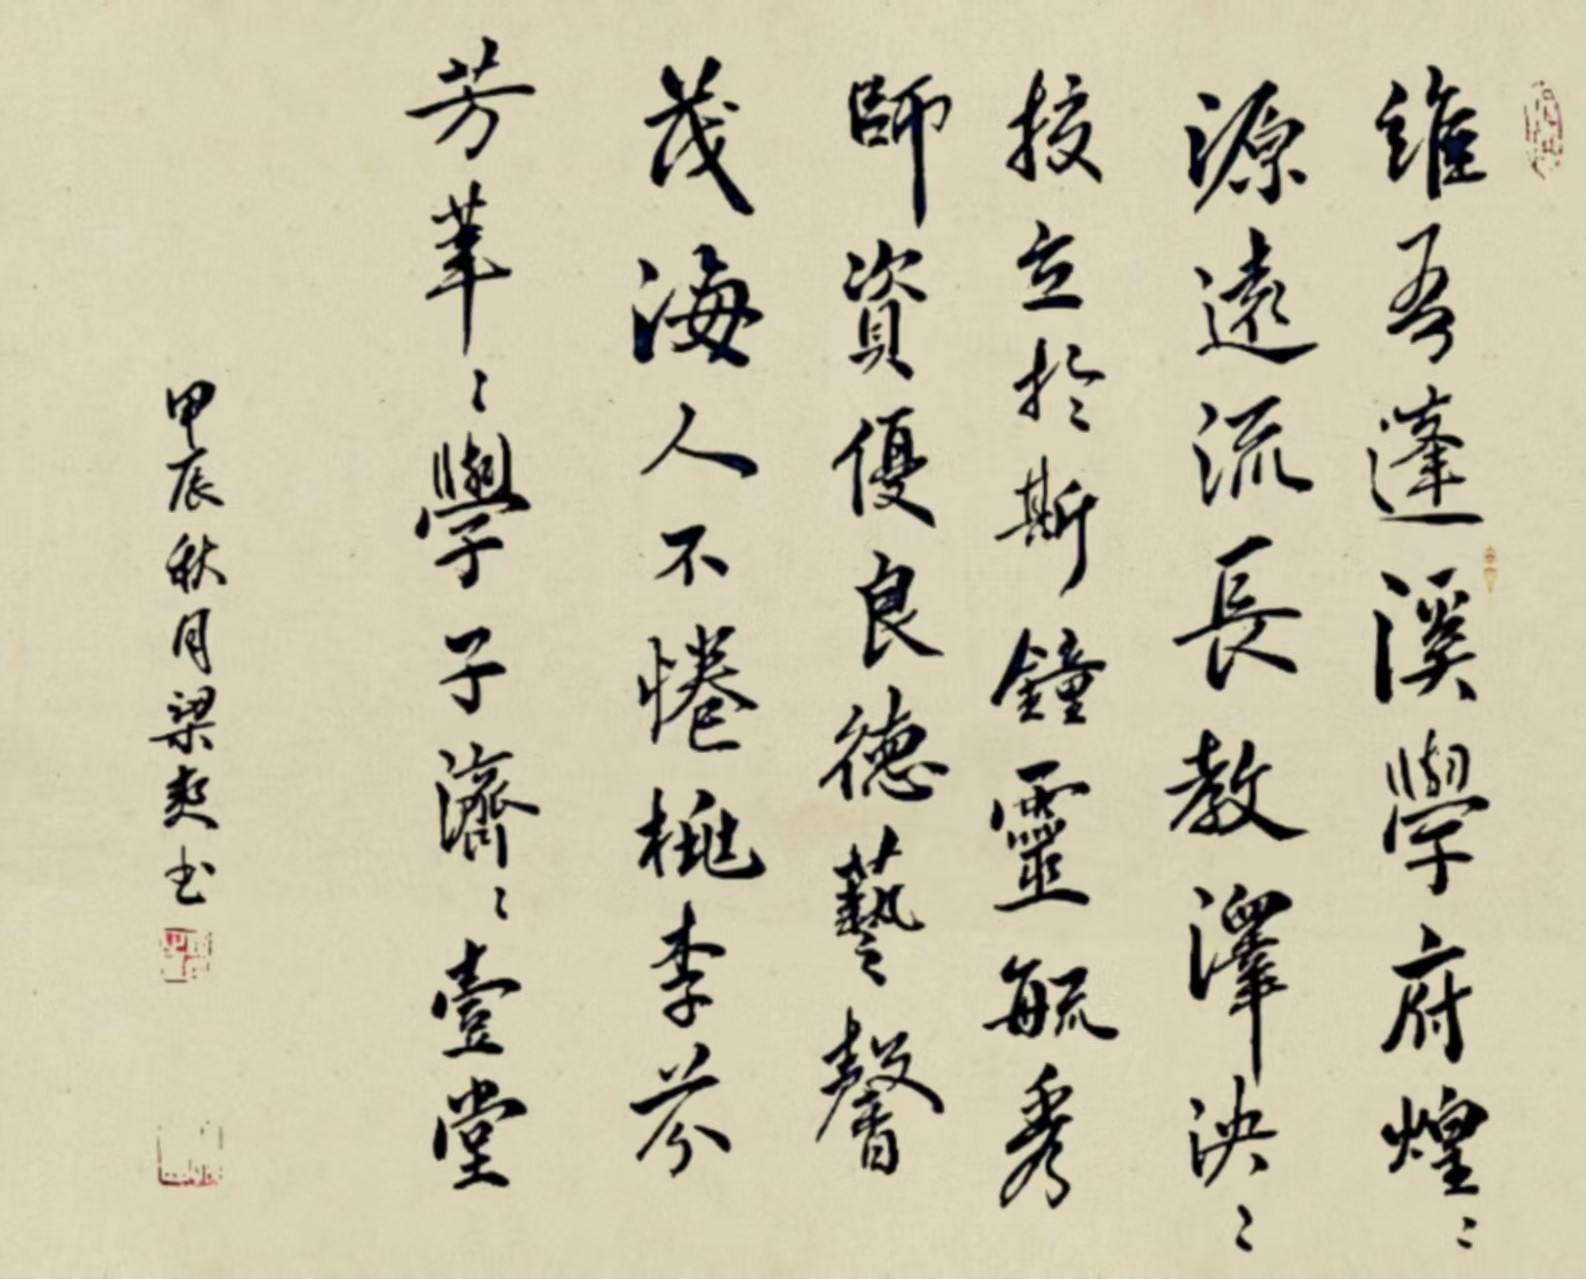 維吾蓬溪學府煌〻
源遠流長教澤泱〻
挍立於斯鐘靈毓秀
師資優良德藝馨
茂海人不惓桃李芬
芳莘〻學子濟〻壹堂
甲辰秋月梁爽书